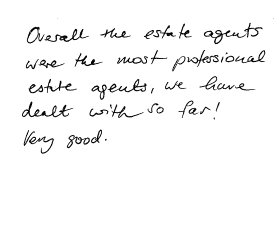 Overall the estate agents
were the most professional
estate agents, we have
dealt with so far!
Very good.